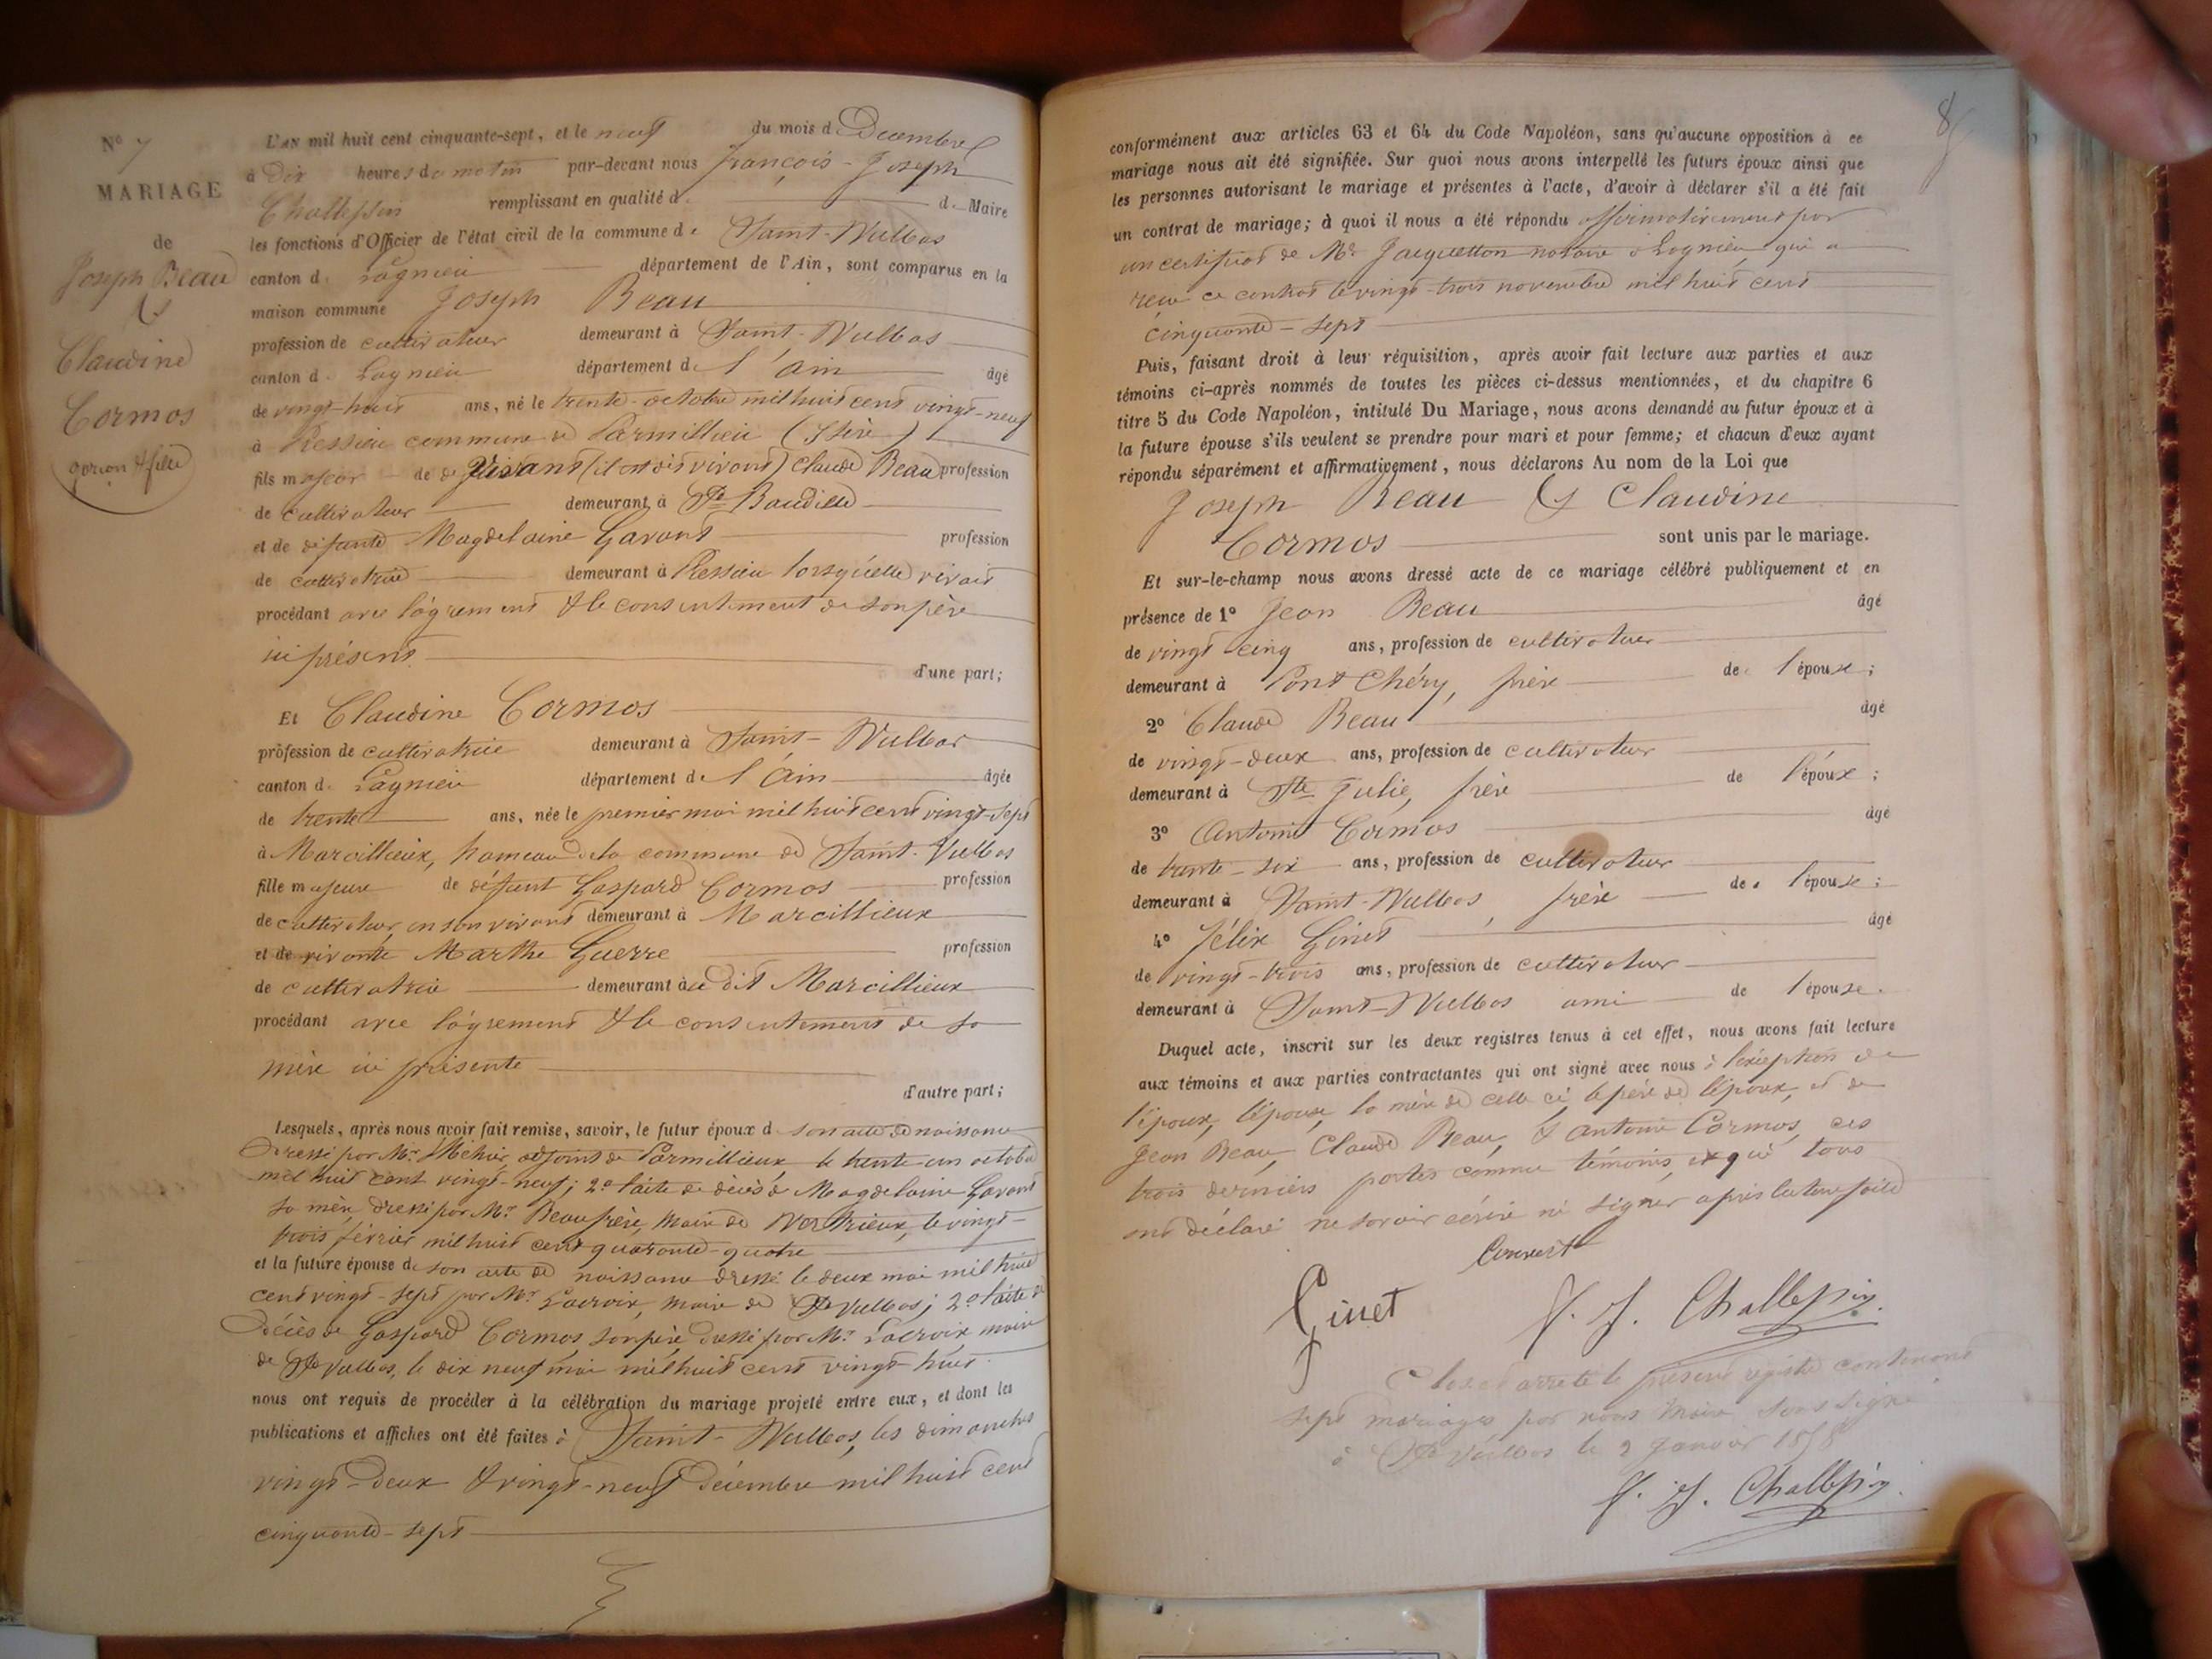 N° 7
MARIAGE
de
Joseph Beau
&
Claudine
Cormos
garçon & fille
L'AN mil huit cent cinquante-sept, et le neuf du mois d Decembre
à Dix heures du matin par-devant nous françois-Joseph
Challessin remplissant en qualité d. d. Maire
les fonctions d'Officier de l'état civil de la commune de Saint-Vulbas
canton d. Lagnieu département de l'Ain, sont comparus en la
maison commune Joseph Beau
profession de cultivateur demeurant à Saint-Vulbas
canton d. Lagnieu département de l'ain âgé
de vingt-huit ans, né le trente octobre mil huit cent vingt-neuf
à Ressieu commune de Parmillieu (Isère)
fils majeur de vivant (il est dis vivant) Claude Beau profession
de cultivateur demeurant à Ste Baudille
et de défunte Magdelaine Gavant profession
de cultivatrice demeurant à Ressieu lorsqu'elle vivait
procédant avec l'agrement & le consentement de son père
ici présent d'une part;
Et Claudine Cormos
profession de cultivatrice demeurant à Saint-Vulbas
canton d. Lagnieu département de l'ain âgée
de trente ans, née le premier mai mil huit cent vingt-sept
à Marcillieux, hameau de la commune de Saint-Vulbas
fille majeure de défunt Gaspard Cormos profession
de cultivateur en son vivant demeurant à Marcillieux
et de vivante Marthe Guerre profession
de cultivatrice demeurant au dit Marcillieux
procédant avec l'agrement & le consentement de sa
mère ici présente
d'autre part;
Lesquels, après nous avoir fait remise, savoir, le futur époux d son acte de naissance
Dressé par Mr adjoint de Parmillieux le trente-un octobre
mil huit cent vingt-neuf; 2° l'acte de décès de Magdelaine Gavant
sa mère, dressé par Mr Beaufrère, Maire de Vertrieux, le vingt-
trois février mil huit cent quarante-quatre
et la future épouse de son acte de naissance dressé le deux mai mil huit
cent vingt-sept par Mr Lacroix, maire de St Vulbas; 2° l'acte de
Décès de Gaspard Cormos, son père, dressé par Mr Lacroix maire
de St Vulbas, le dix neuf mai mil huit cent vingt-huit
nous ont requis de procéder à la célébration du mariage projeté entre eux, et dont les
publications et affiches ont été faites à Saint-Vulbas, les dimanches
vingt-deux & vingt-neuf Décembre mil huit cent
cinquante-sept
8
conformément aux articles 63 et 64 du Code Napoléon, sans qu'aucune opposition à ce
mariage nous ait été signifiée. Sur quoi nous avons interpellé les futurs époux ainsi que
les personnes autorisant le mariage et présentes à l'acte, d'avoir à déclarer s'il a été fait
un contrat de mariage; à quoi il nous a été répondu affirmativement par
un certificat de Mr Jacquetton notaire à Lagnieu, qui a
reçu ce contrat le vingt-trois novembre mil huit cent
cinquante-sept
Puis, faisant droit à leur réquisition, après avoir fait lecture aux parties et aux
témoins ci-après nommés de toutes les pièces ci-dessus mentionnées, et du chapitre 6
titre 5 du Code Napoléon, intitulé Du Mariage, nous avons demandé au futur époux et à
la future épouse s'ils veulent se prendre pour mari et pour femme; et chacun d'eux ayant
répondu séparément et affirmativement, nous déclarons Au nom de la Loi que
Joseph Beau & Claudine
Cormos sont unis par le mariage.
Et sur-le-champ nous avons dressé acte de ce mariage célébré publiquement et en
présence de 1° Jean Beau âgé
de vingt cinq ans, profession de cultivateur
demeurant à Pont Chéry, frère de l'épouse;
2° Claude Beau âgé
de vingt-deux ans, profession de cultivateur
demeurant à Ste Julie, frère de l'époux;
3° Antoine Cormos âgé
de trente-six ans, profession de cultivateur
demeurant à Saint-Vulbas, frère de l'épouse;
4° Félix Ginet âgé
de vingt-trois ans, profession de cultivateur
demeurant à Saint-Vulbas ami de l'épouse.
Duquel acte, inscrit sur les deux registres tenus à cet effet, nous avons fait lecture
aux témoins et aux parties contractantes qui ont signé avec nous à l'exception de
l'époux, l'épouse, la mère de celle ci, le père de l'époux, et de
Jean Beau, Claude Beau, & antoine Cormos, ces
trois derniers portés comme témoins, et qui tous
ont déclaré ne savoir écrire ni signer après lecture faite
Ginet F. J. Challessin
Clos et arrêté le présent registre contenant
sept mariages par nous Maire soussigné
à St Vulbas le 2 Janvier 1858
F. J. Challessin